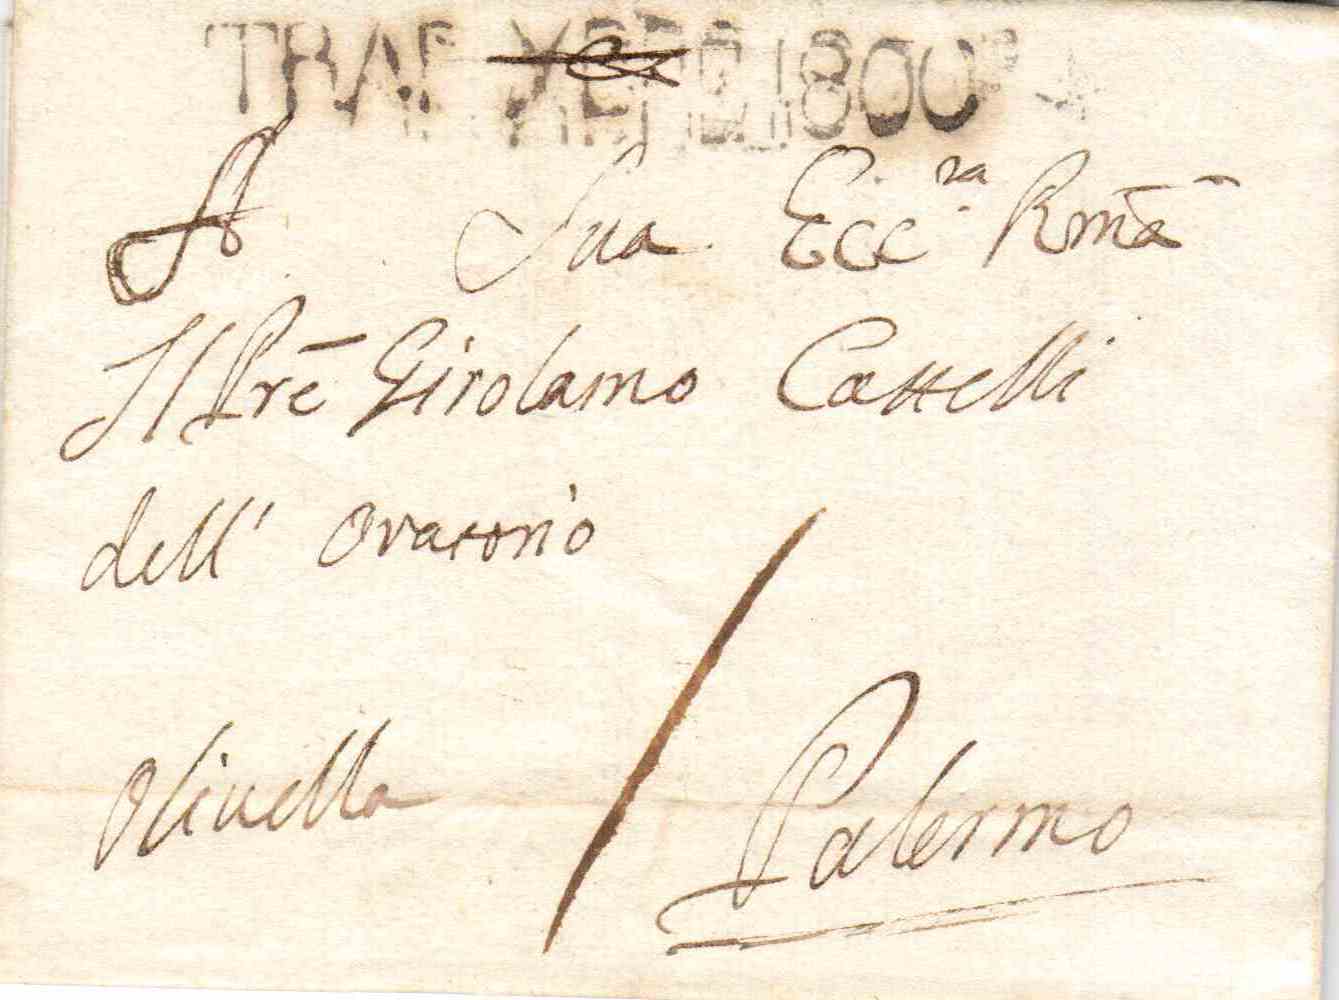 TRAP 1800
A Sua Ecc.ra Rmã
Il Prẽ Girolamo Castelli
dell' Oratorio
Olivella / Palermo